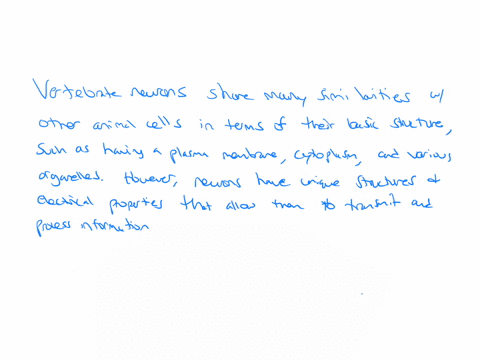 Vertebrate neurons share many similarities w/
other animal cells in terms of their basic structure,
such as having a plasma membrane, cytoplasm, and various
organelles. However, neurons have unique structures &
electrical properties that allow them to transmit and
process information